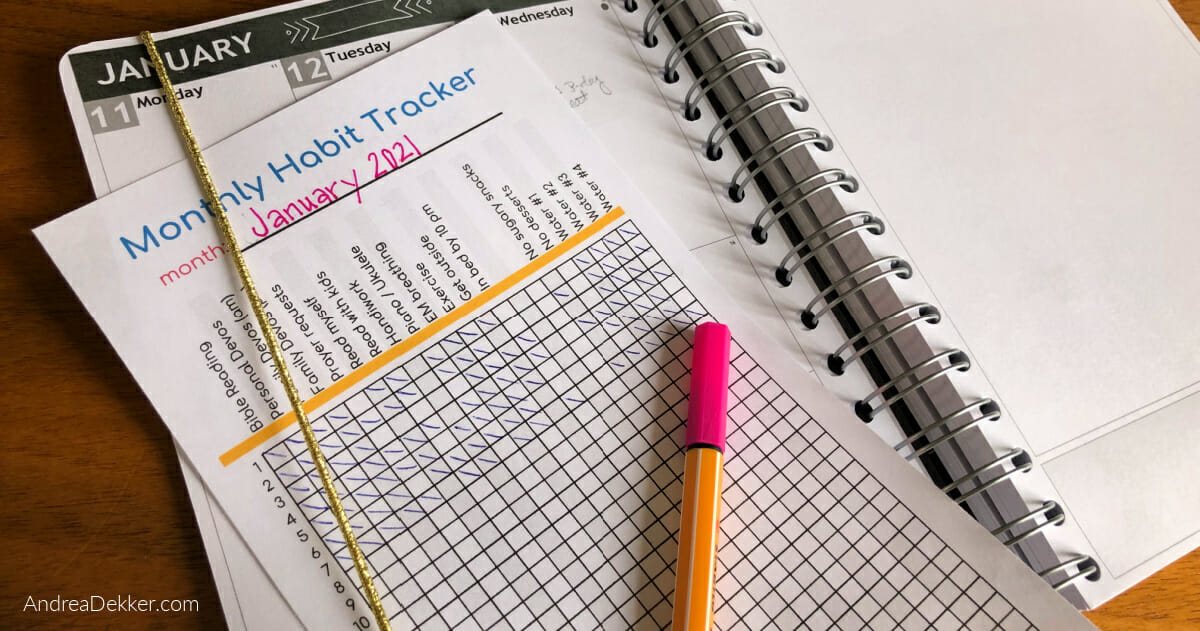 JANUARY
11 Monday
12 Tuesday
Wednesday
Monthly Habit Tracker
month: January 2021
Bible Reading
Personal Devos (am)
Family Devos
Family
Prayer requests
Prayer myself
Read with kids
Read
Handiwork
Piano / Ukulele
EM breathing
Exercise
Get outside
In bed by 10 pm
No sugary snacks
No desserts
Water #1
Water #2
Water #3
Water #4
1
2
3
4
5
6
7
8
9
10
AndreaDekker.com